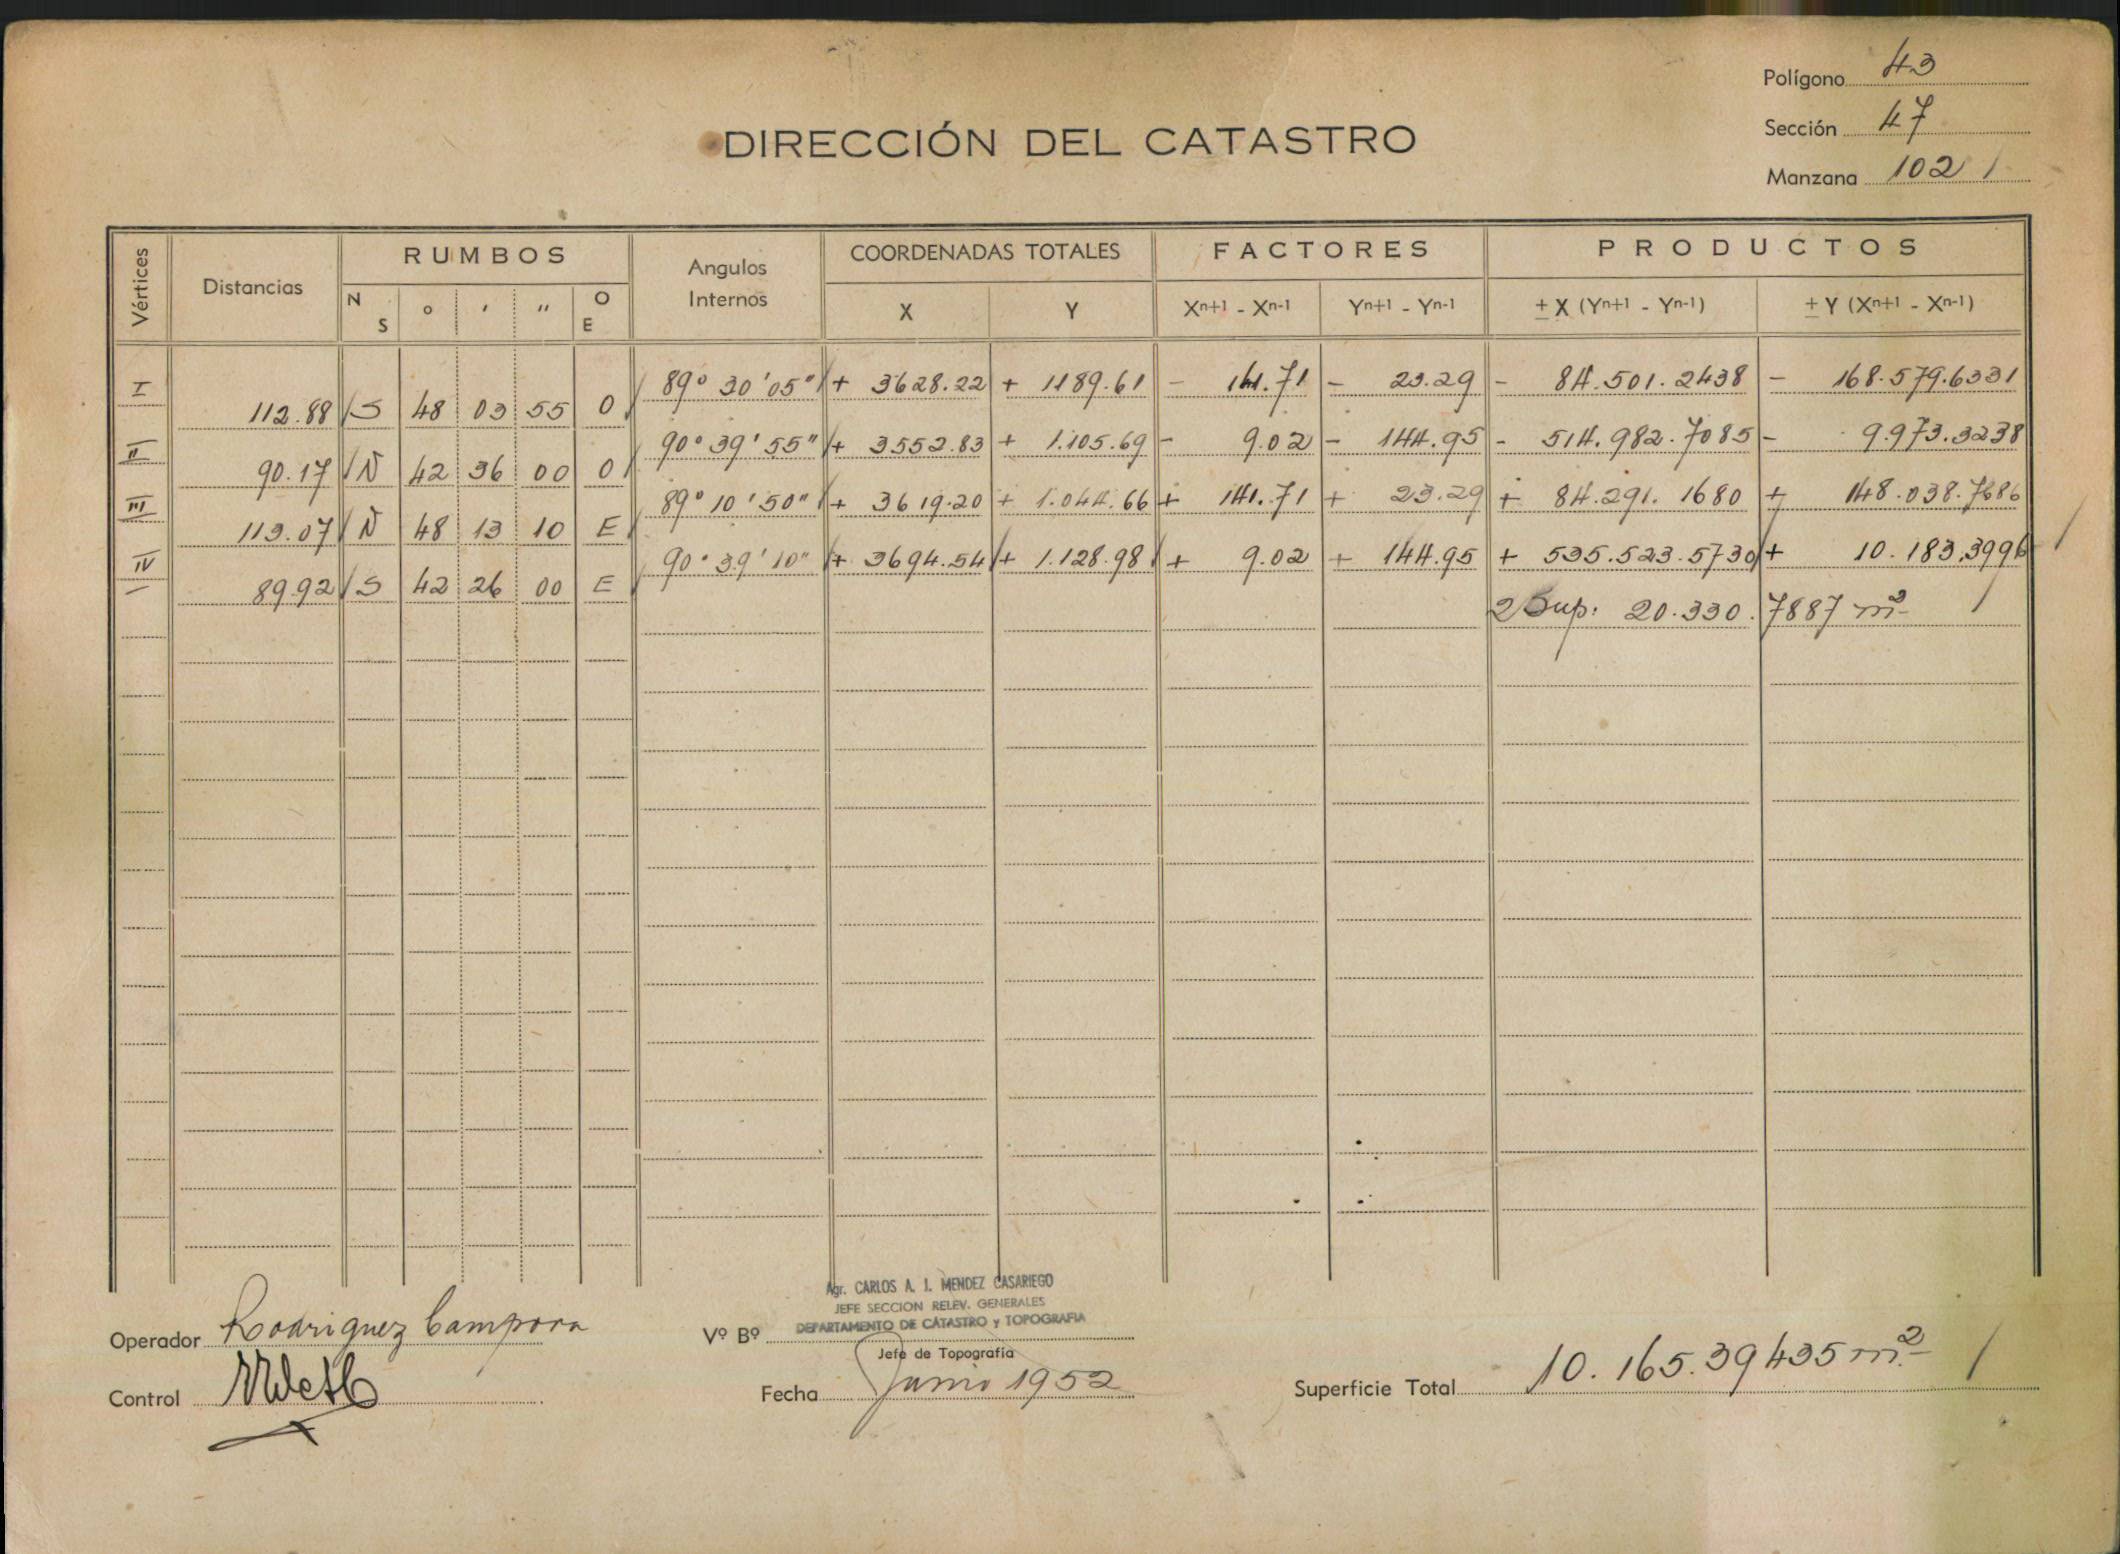 Polígono 43
Sección 47
Manzana 102 /
DIRECCIÓN DEL CATASTRO
Vértices Distancias RUMBOS Angulos Internos COORDENADAS TOTALES FACTORES PRODUCTOS
N S ° ' " O E X Y Xⁿ⁺¹ - Xⁿ⁻¹ Yⁿ⁺¹ - Yⁿ⁻¹ ± X (Yⁿ⁺¹ - Yⁿ⁻¹) ± Y (Xⁿ⁺¹ - Xⁿ⁻¹)
I 89° 30' 05" / + 3628.22 + 1189.61 - 141.71 - 23.29 - 84.501.2438 - 168.579.6331
112.88 / S 48 03 55 O /
II 90° 39' 55" / + 3552.83 + 1.105.69 - 9.02 - 144.95 - 514.982.7085 - 9.973.3238
90.17 / N 42 36 00 O /
III 89° 10' 50" / + 3619.20 + 1.044.66 + 141.71 + 23.29 + 84.291.1680 + 148.038.7686
113.07 / N 48 13 10 E /
IV 90° 39' 10" / + 3694.54 / + 1.128.98 / + 9.02 + 144.95 + 535.523.5730 / + 10.183.3996 /
89.92 / S 42 26 00 E /
2 Sup: 20.330.7887 m² /
Agr. CARLOS A. J. MENDEZ CASARIEGO
JEFE SECCION RELEV. GENERALES
DEPARTAMENTO DE CATASTRO y TOPOGRAFIA
Operador Rodriguez Campora
Vº Bº
Jefe de Topografía
Control
Fecha Junio 1952
Superficie Total 10.165.39435 m² /